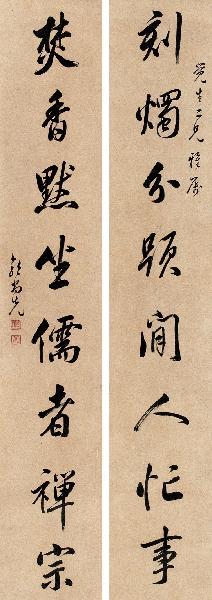 刻燭分題閒人忙事
覺生二兄雅屬
焚香默坐儒者禪宗
郭尚先